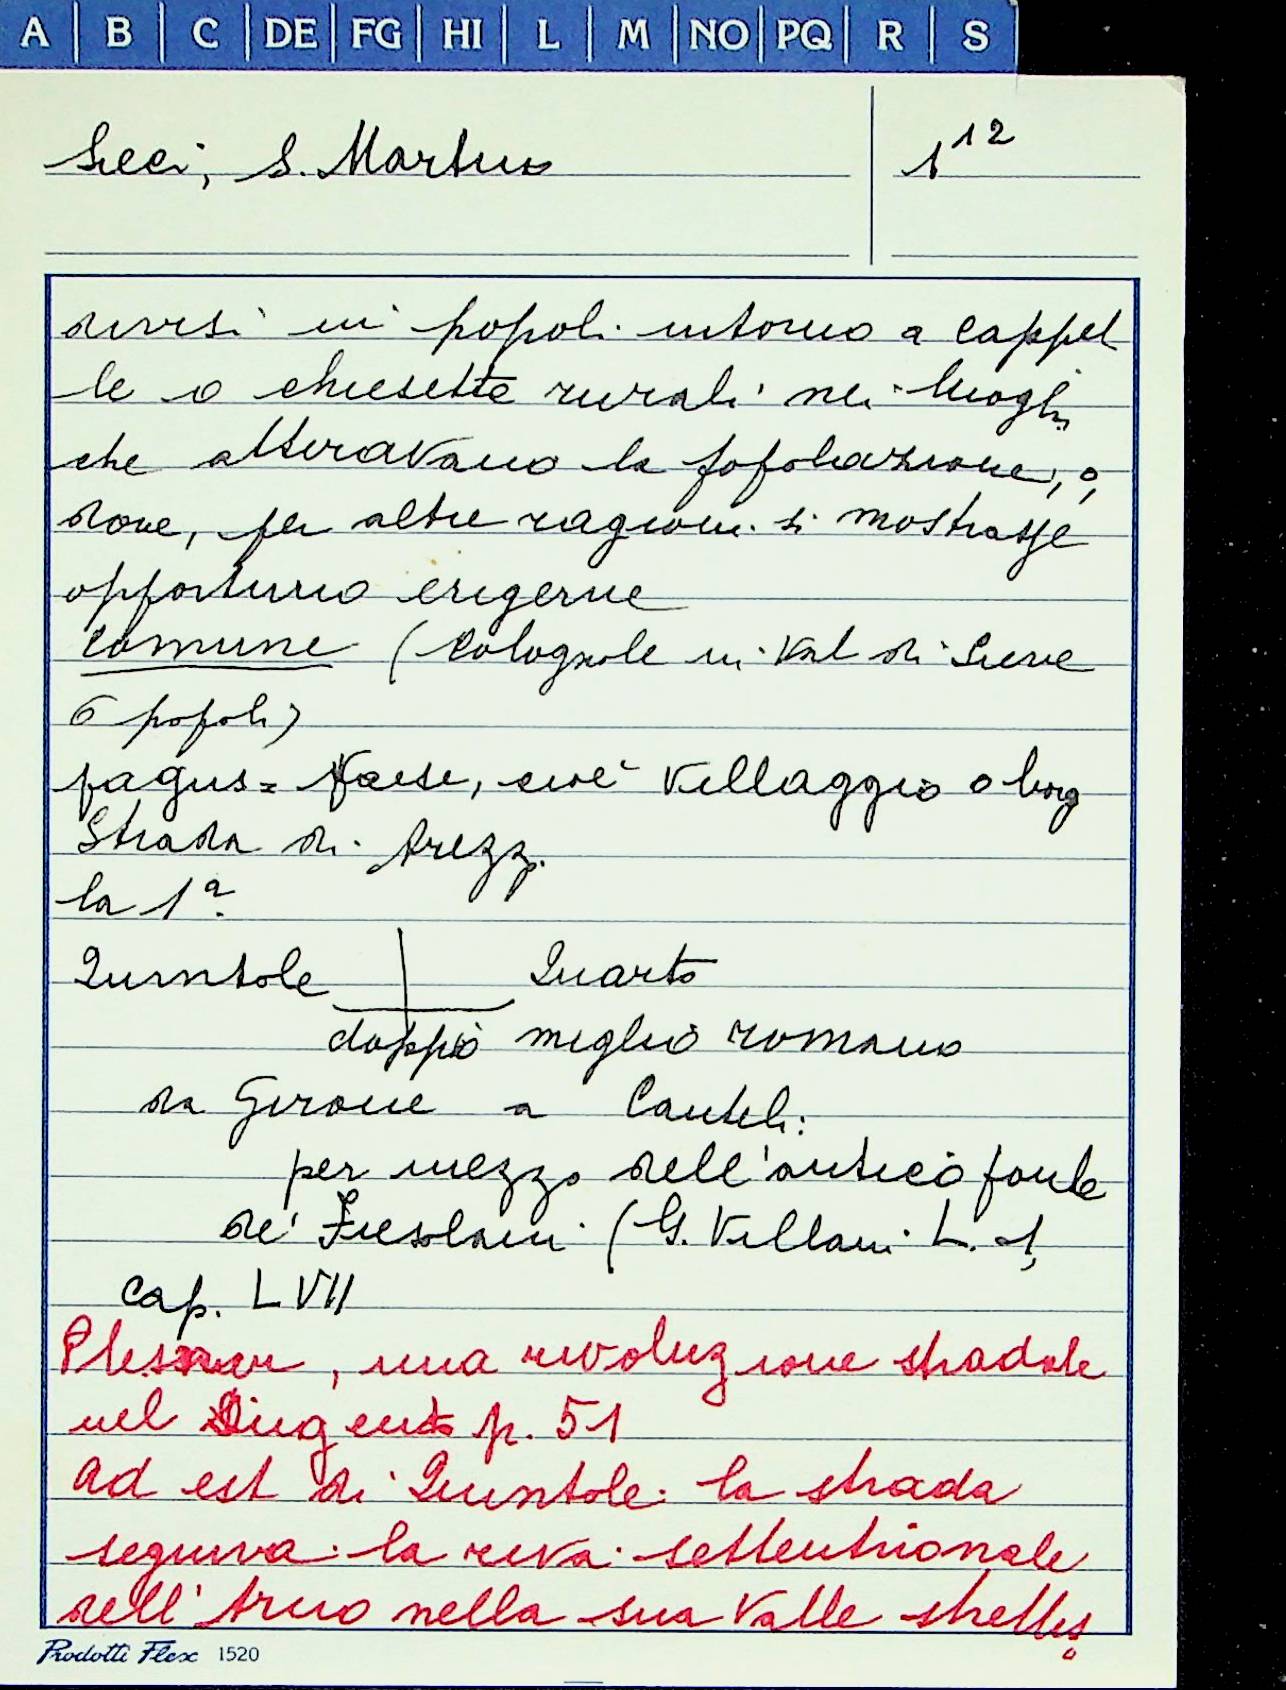 A B C DE FG HI L M NO PQ R S
Sieci, S. Martino
1 12
divisi in popoli intorno a cappel
le o chiesette rurali nei luoghi
che attiravano la popolazione, o,
dove, per altre ragioni si mostrasse
opportuno erigerne
Comune (Colognole in Val di Sieve
6 popoli)
pagus = Paese, cioè Villaggio o borg
Strada di Arezz.
la 1ª
Quintole Quarto
doppio miglio romano
da Girone a Candeli:
per mezzo dell'antico ponte
de' Fiesolani (G. Villani L. 1,
cap. LVII
Plesner, una rivoluzione stradale
nel Dugento p. 51
ad est di Quintole la strada
seguiva la riva settentrionale
dell'Arno nella sua Valle stretta
Prodotti Flex 1520